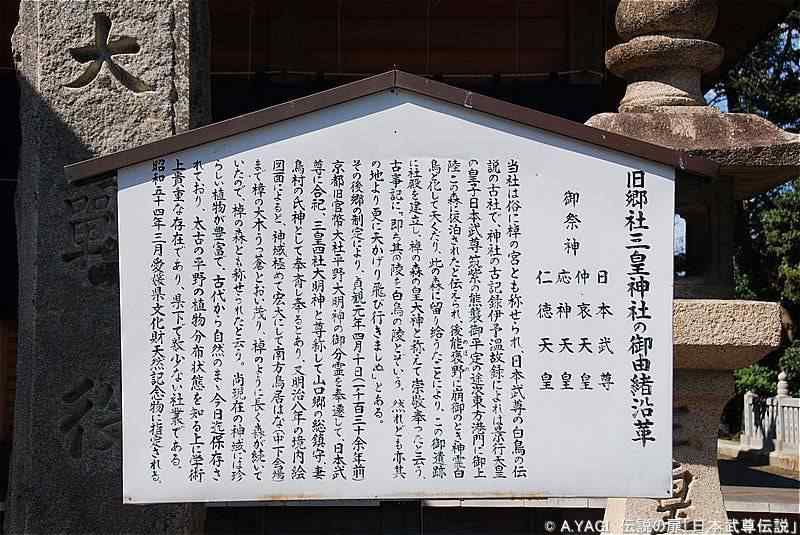 旧郷社三皇神社の御由緒沿革
御祭神
日本武尊
仲哀天皇
応神天皇
仁徳天皇
当社は俗に樟の宮とも称せられ、日本武尊の白鳥の伝
説の古社で、神社の古記録伊予温故録によれば景行天皇
の皇子日本武尊、筑紫の熊襲御平定の途志東方港門に御上
陸この森に夜泊されたと伝えられ、後能褒野に崩御のとき神霊白
鳥と化して天くだり、此の森に留り給うたことにより、この御遺跡
に社殿を建立し、樟の森の皇大神と称えて崇敬奉ったと云う、
古事記に、即ち其の陵を白鳥の陵と云いう。然れども亦其
の地より更に天かけり飛び行きましぬ」とある。
その後郷の制定により、貞観元年四月十日(一千百三十余年前)
京都旧官幣大社平野大明神の御分霊を奉遷して、日本武
尊と合祀、三皇四社大明神と尊称して山口郷の総鎮守妻
鳥村の氏神として奉斉し奉るとあり、又明治八年の境内絵
図面によると、神域極めて宏大にして南方鳥居はなご甲下令場
まで樟の大木うっ蒼とおい茂り、樟のように長く森が続いて
いたので、樟の森とも称せられたと云う。尚現在の神域には珍
らしい植物が豊富で、古代から自然のまゝ今日迄保存さ
れており、太古の平野の植物分布状態を知る上に学術
上貴重な存在であり、県下でも少ない社叢である。
昭和五十四年三月愛媛県文化財天然記念物に指定される。
大
皇
© A.YAGI 伝説の扉「日本武尊伝説」